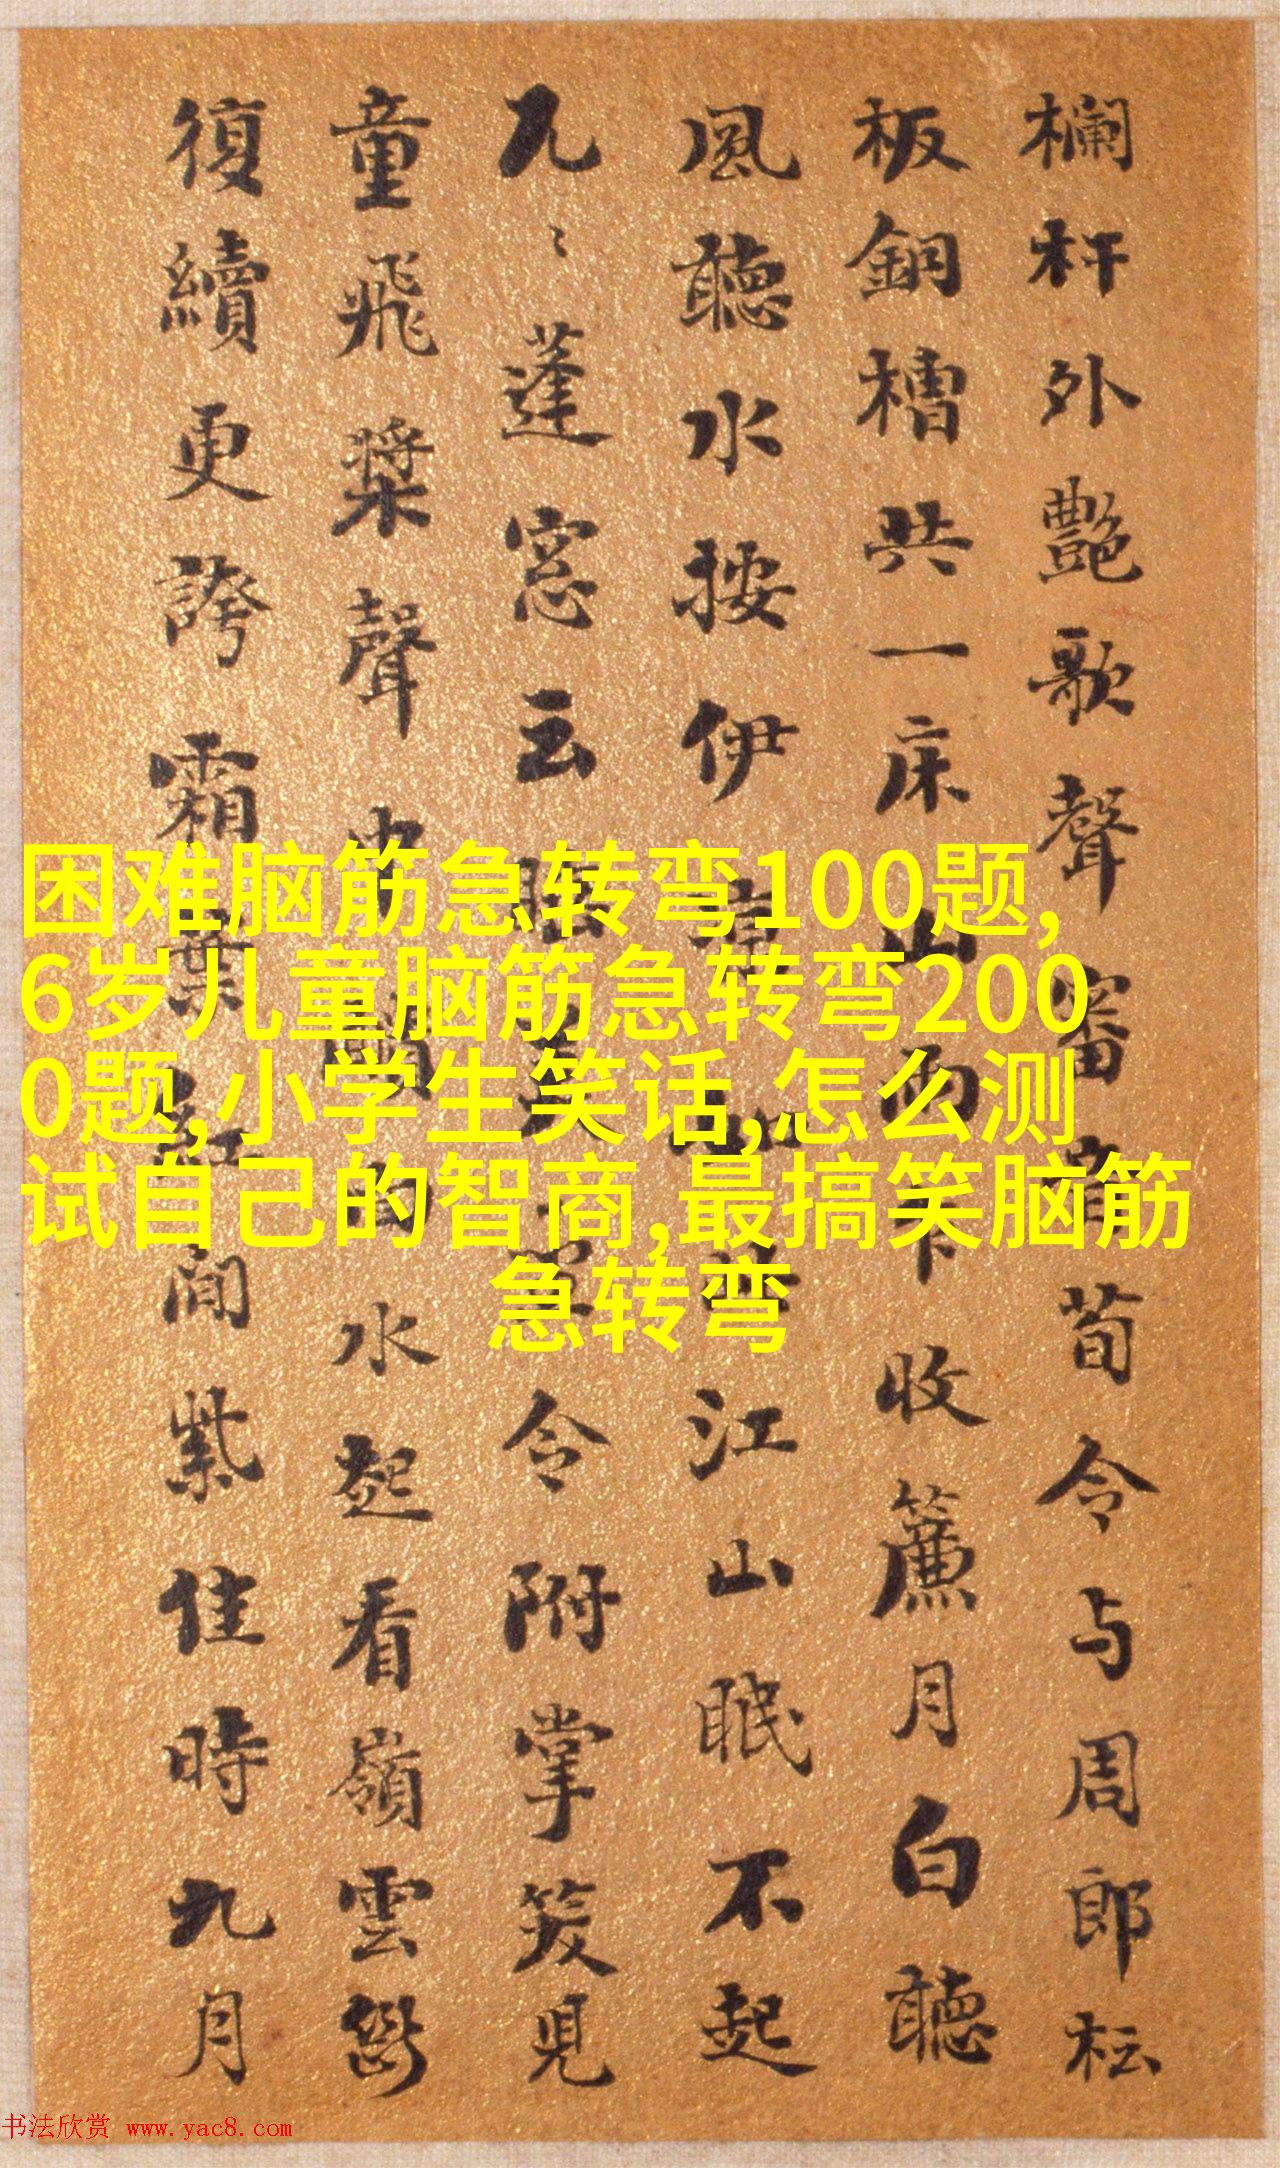 欄杆外艷歌聲審音荀令与周郎松
板銅槽共一床山雨下收簾月白聽
風聽水按伊涼江山眠不起
九〻蓬窓云令附掌筱見
童飛槳聲中水起看嶺雲
復續更誇霜葉紅間紫佳時九月
困难脑筋急转弯100题,
6岁儿童脑筋急转弯200
0题,小学生笑话,怎么测
试自己的智商,最搞笑脑筋
急转弯
书法欣赏 www.yac8.com